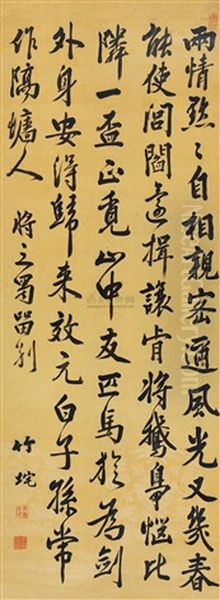 兩情自相親密邇風光又幾春
能使閭閻還揖讓肯將鵝鳧惱比
隣一盃正覓山中友匹馬為劍
外身安得歸來效元白子孫常
作隔墻人 將之蜀留別
竹垞